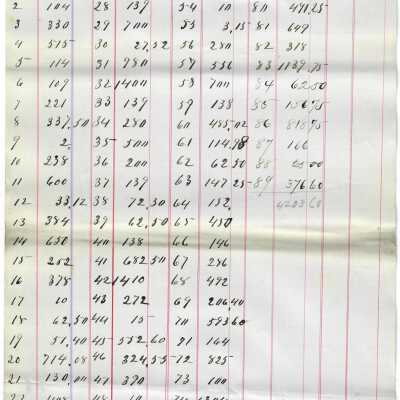 2 104 28 139 54 10 80 491,25
3 330 29 700 55 3,15 81 649
4 515 30 27,52 56 280 82 318
5 114 31 980 57 556 83 1139,75
6 109 32 1400 58 700 84 62,50
7 221 33 139 59 138 85 156,75
8 337,50 34 280 60 485,02 86 818,75
9 2 35 500 61 114,98 87 166
10 238 36 200 62 62,50 88 25,00
11 600 37 139 63 147,25 89 376,60
12 33,12 38 72,50 64 152, 4203,60
13 384 39 62,50 65 450
14 650 40 138 66 146
15 252 41 682,50 67 286
16 378 42 1410 68 492
17 10 43 272 69 206,40
18 62,50 44 15 70 593,60
19 51,40 45 552,60 71 164
20 714,08 46 324,55 72 825
21 130,00 47 390 73 100